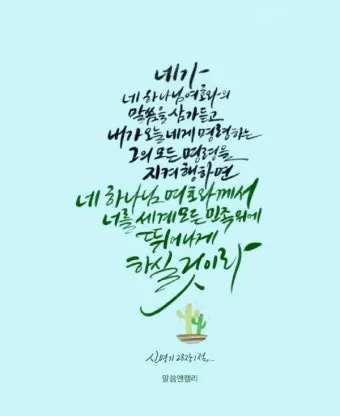 네가
네 하나님 여호와의
말씀을 삼가 듣고
내가 오늘 네게 명령하는
그의 모든 명령을
지켜 행하면
네 하나님 여호와께서
너를 세계 모든 민족 위에
뛰어나게
하실 것이라
신명기 28장 1절...
말씀앤캘리